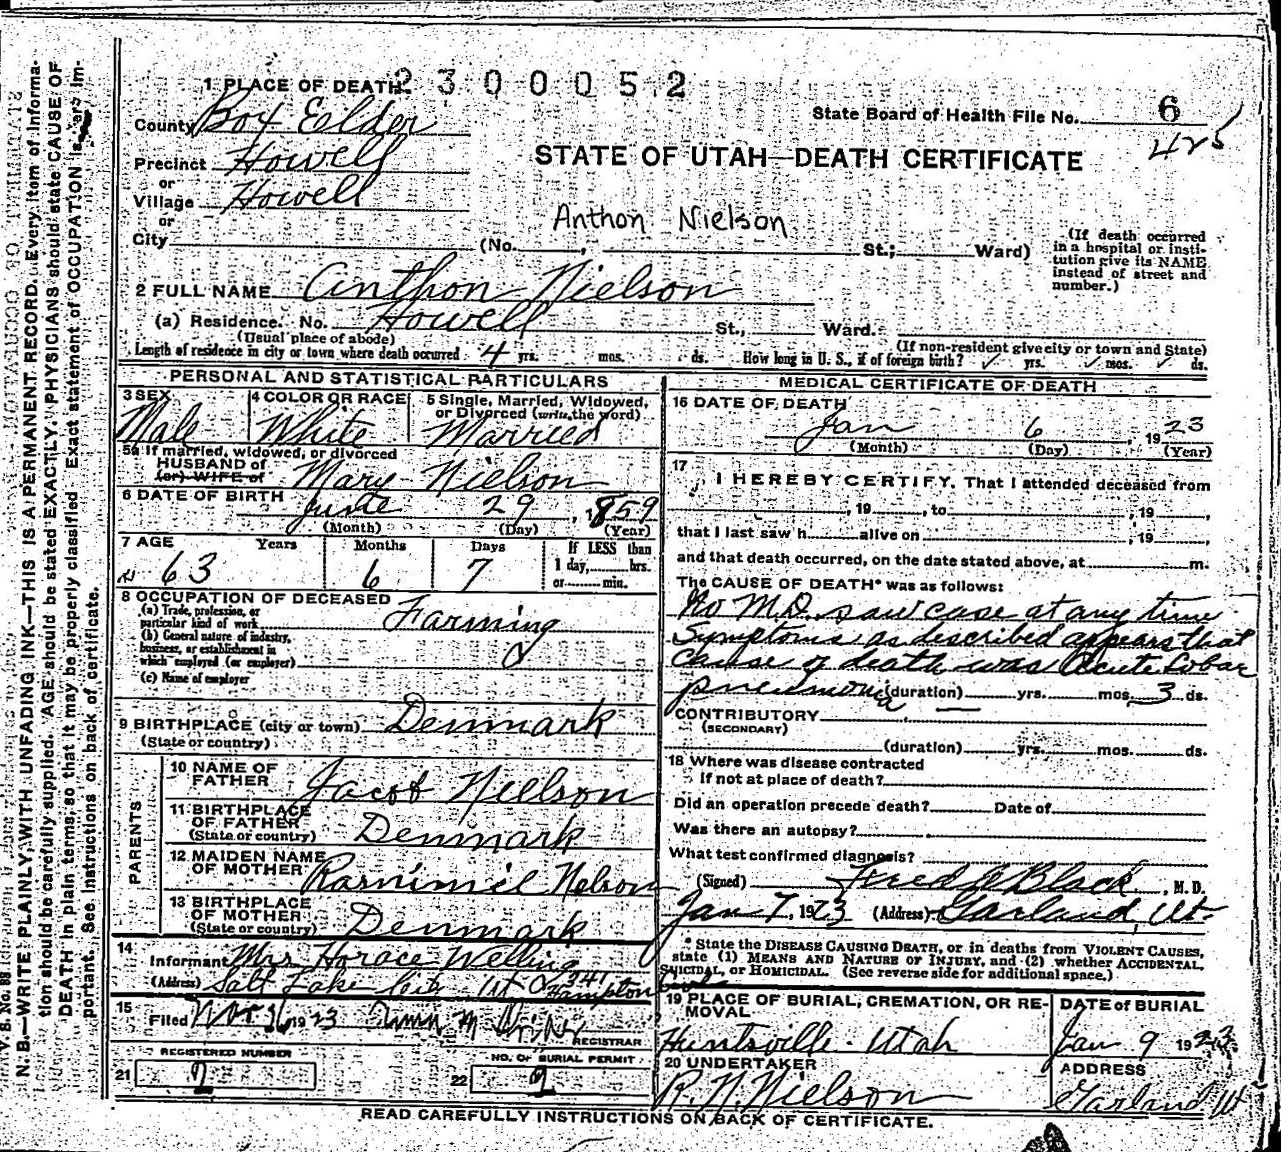 2300052
1 PLACE OF DEATH
County Box Elder
State Board of Health File No. 6
425
Precinct Howell
STATE OF UTAH—DEATH CERTIFICATE
or
Village Howell
or
Anthon Nielson
City (No. , St.; Ward)
(If death occurred
in a hospital or insti-
tution give its NAME
instead of street and
number.)
2 FULL NAME Anthon Nielson
(a) Residence. No. Howell St., Ward.
(Usual place of abode) (If non-resident give city or town and State)
Length of residence in city or town where death occurred 4 yrs. mos. ds. How long in U. S., if of foreign birth? yrs. mos. ds.
PERSONAL AND STATISTICAL PARTICULARS
3 SEX 4 COLOR OR RACE 5 Single, Married, Widowed,
or Divorced (write the word)
Male White Married
5a If married, widowed, or divorced
HUSBAND of
(or) WIFE of Mary Nielson
6 DATE OF BIRTH June 29, 1859
(Month) (Day) (Year)
7 AGE Years Months Days If LESS than
1 day, hrs.
or min.
63 6 7
8 OCCUPATION OF DECEASED
(a) Trade, profession, or
particular kind of work Farming
(b) General nature of industry,
business, or establishment in
which employed (or employer)
(c) Name of employer
9 BIRTHPLACE (city or town) Denmark
(State or country)
PARENTS
10 NAME OF
FATHER Jacob Nielson
11 BIRTHPLACE
OF FATHER
(State or country) Denmark
12 MAIDEN NAME
OF MOTHER Nelson
13 BIRTHPLACE
OF MOTHER
(State or country) Denmark
14
Informant Mrs Horace Welling
(Address) Salt Lake City Ut Hampton
15
Filed 1923
REGISTRAR
REGISTERED NUMBER NO. OF BURIAL PERMIT
21 2 22 2
MEDICAL CERTIFICATE OF DEATH
16 DATE OF DEATH
Jan 6, 1923
(Month) (Day) (Year)
17
I HEREBY CERTIFY, That I attended deceased from
, 19 , to , 19 ,
that I last saw h alive on , 19 ,
and that death occurred, on the date stated above, at m.
The CAUSE OF DEATH* was as follows:
No M.D. saw case at any time
Symptoms as described appears that
cause of death was Acute Lobar
pneumonia (duration) yrs. mos. 3 ds.
CONTRIBUTORY
(SECONDARY)
(duration) yrs. mos. ds.
18 Where was disease contracted
if not at place of death?
Did an operation precede death? Date of
Was there an autopsy?
What test confirmed diagnosis?
(Signed) Black, M.D.
Jan 7, 1923 (Address) Garland, Ut.
* State the DISEASE CAUSING DEATH, or in deaths from VIOLENT CAUSES,
state (1) MEANS AND NATURE OF INJURY, and (2) whether ACCIDENTAL,
SUICIDAL, or HOMICIDAL. (See reverse side for additional space.)
19 PLACE OF BURIAL, CREMATION, OR RE-
MOVAL
Huntsville Utah
DATE of BURIAL
Jan 9 1923
20 UNDERTAKER
R. N. Nielson
ADDRESS
Garland Ut
READ CAREFULLY INSTRUCTIONS ON BACK OF CERTIFICATE.
V. S. No. 88
N. B.—WRITE PLAINLY, WITH UNFADING INK—THIS IS A PERMANENT RECORD. Every item of informa-
tion should be carefully supplied. AGE should be stated EXACTLY. PHYSICIANS should state CAUSE OF
DEATH in plain terms, so that it may be properly classified. Exact statement of OCCUPATION is very im-
portant. See instructions on back of certificate.